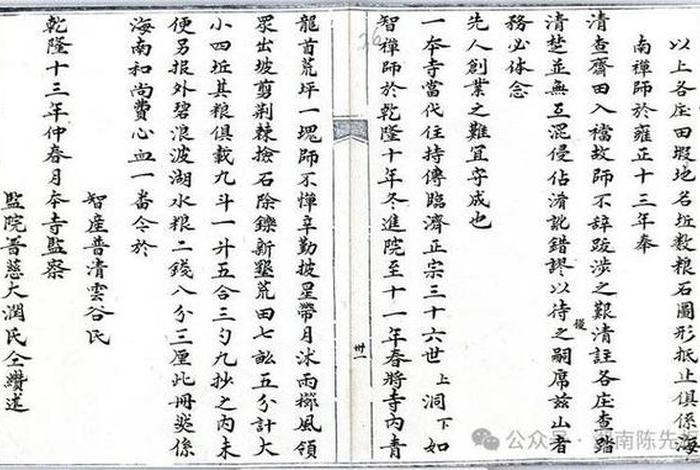 以上各庄田塅地名坵数粮石圖形抵止俱係海
南禪師於雍正十三年奉
清查齋田入襠故師不辞跋涉之艱清註各庄查踏
清楚並無互混侵佔淆訛錯謬以待之後嗣席兹山者
務必体念
先人創業之難宜守成也
一本寺當代住持傳臨濟正宗三十六世上洞下如
智禅師於乾隆十年冬進院至十一年春將寺内青
龍首荒坪一塊師不憚辛勤披星帶月沐雨櫛風領
眾出坡剪荆棘撿石除鑠新墾荒田七畝五分計大
小四坵其粮俱載九斗一升五合三勺九抄之内未
便另报外碧浪波湖水粮二錢八分三厘此冊奕係
海南和尚費心血一番今於
智產普清雲谷氏
乾隆十三年仲春月本寺監察
監院普慈大潤氏仝纘述
卅一
26
公众号·湖南陈先